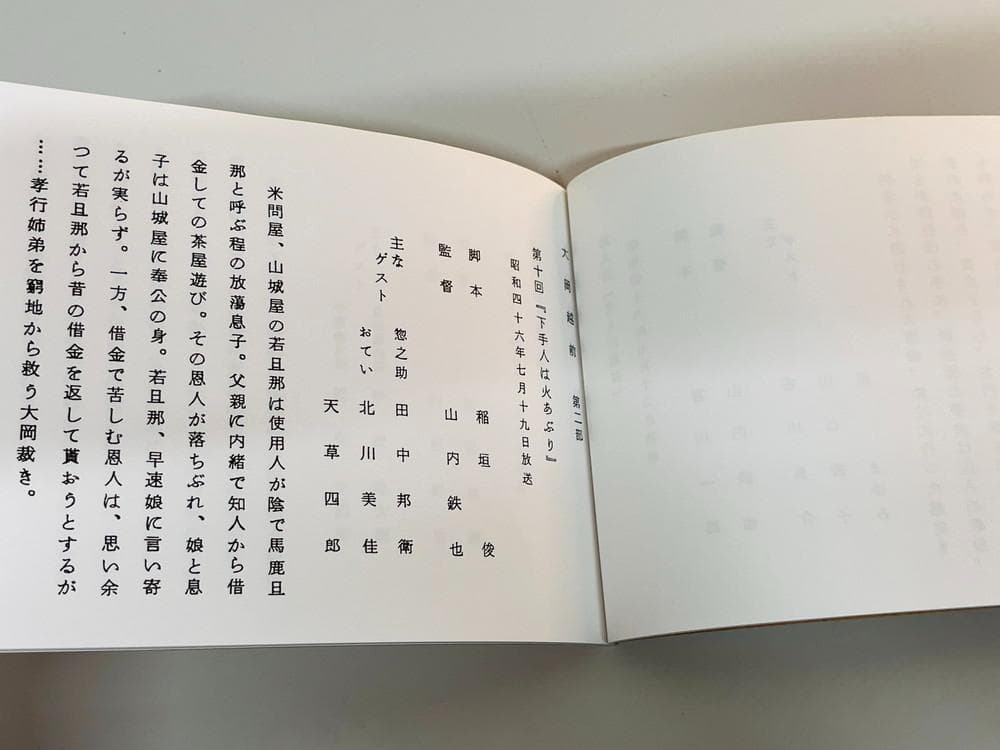 大岡越前　第二部
第十回『下手人は火あぶり』
昭和四十六年七月十九日放送
脚本　稲垣俊
監督　山内鉄也
主な
ゲスト
惣之助　田中邦衛
おてい　北川美佳
天草四郎
米問屋、山城屋の若旦那は使用人が陰で馬鹿旦
那と呼ぶ程の放蕩息子。父親に内緒で知人から借
金しての茶屋遊び。その恩人が落ちぶれ、娘と息
子は山城屋に奉公の身。若旦那、早速娘に言い寄
るが実らず。一方、借金で苦しむ恩人は、思い余
つて若旦那から昔の借金を返して貰おうとするが
……孝行姉弟を窮地から救う大岡裁き。